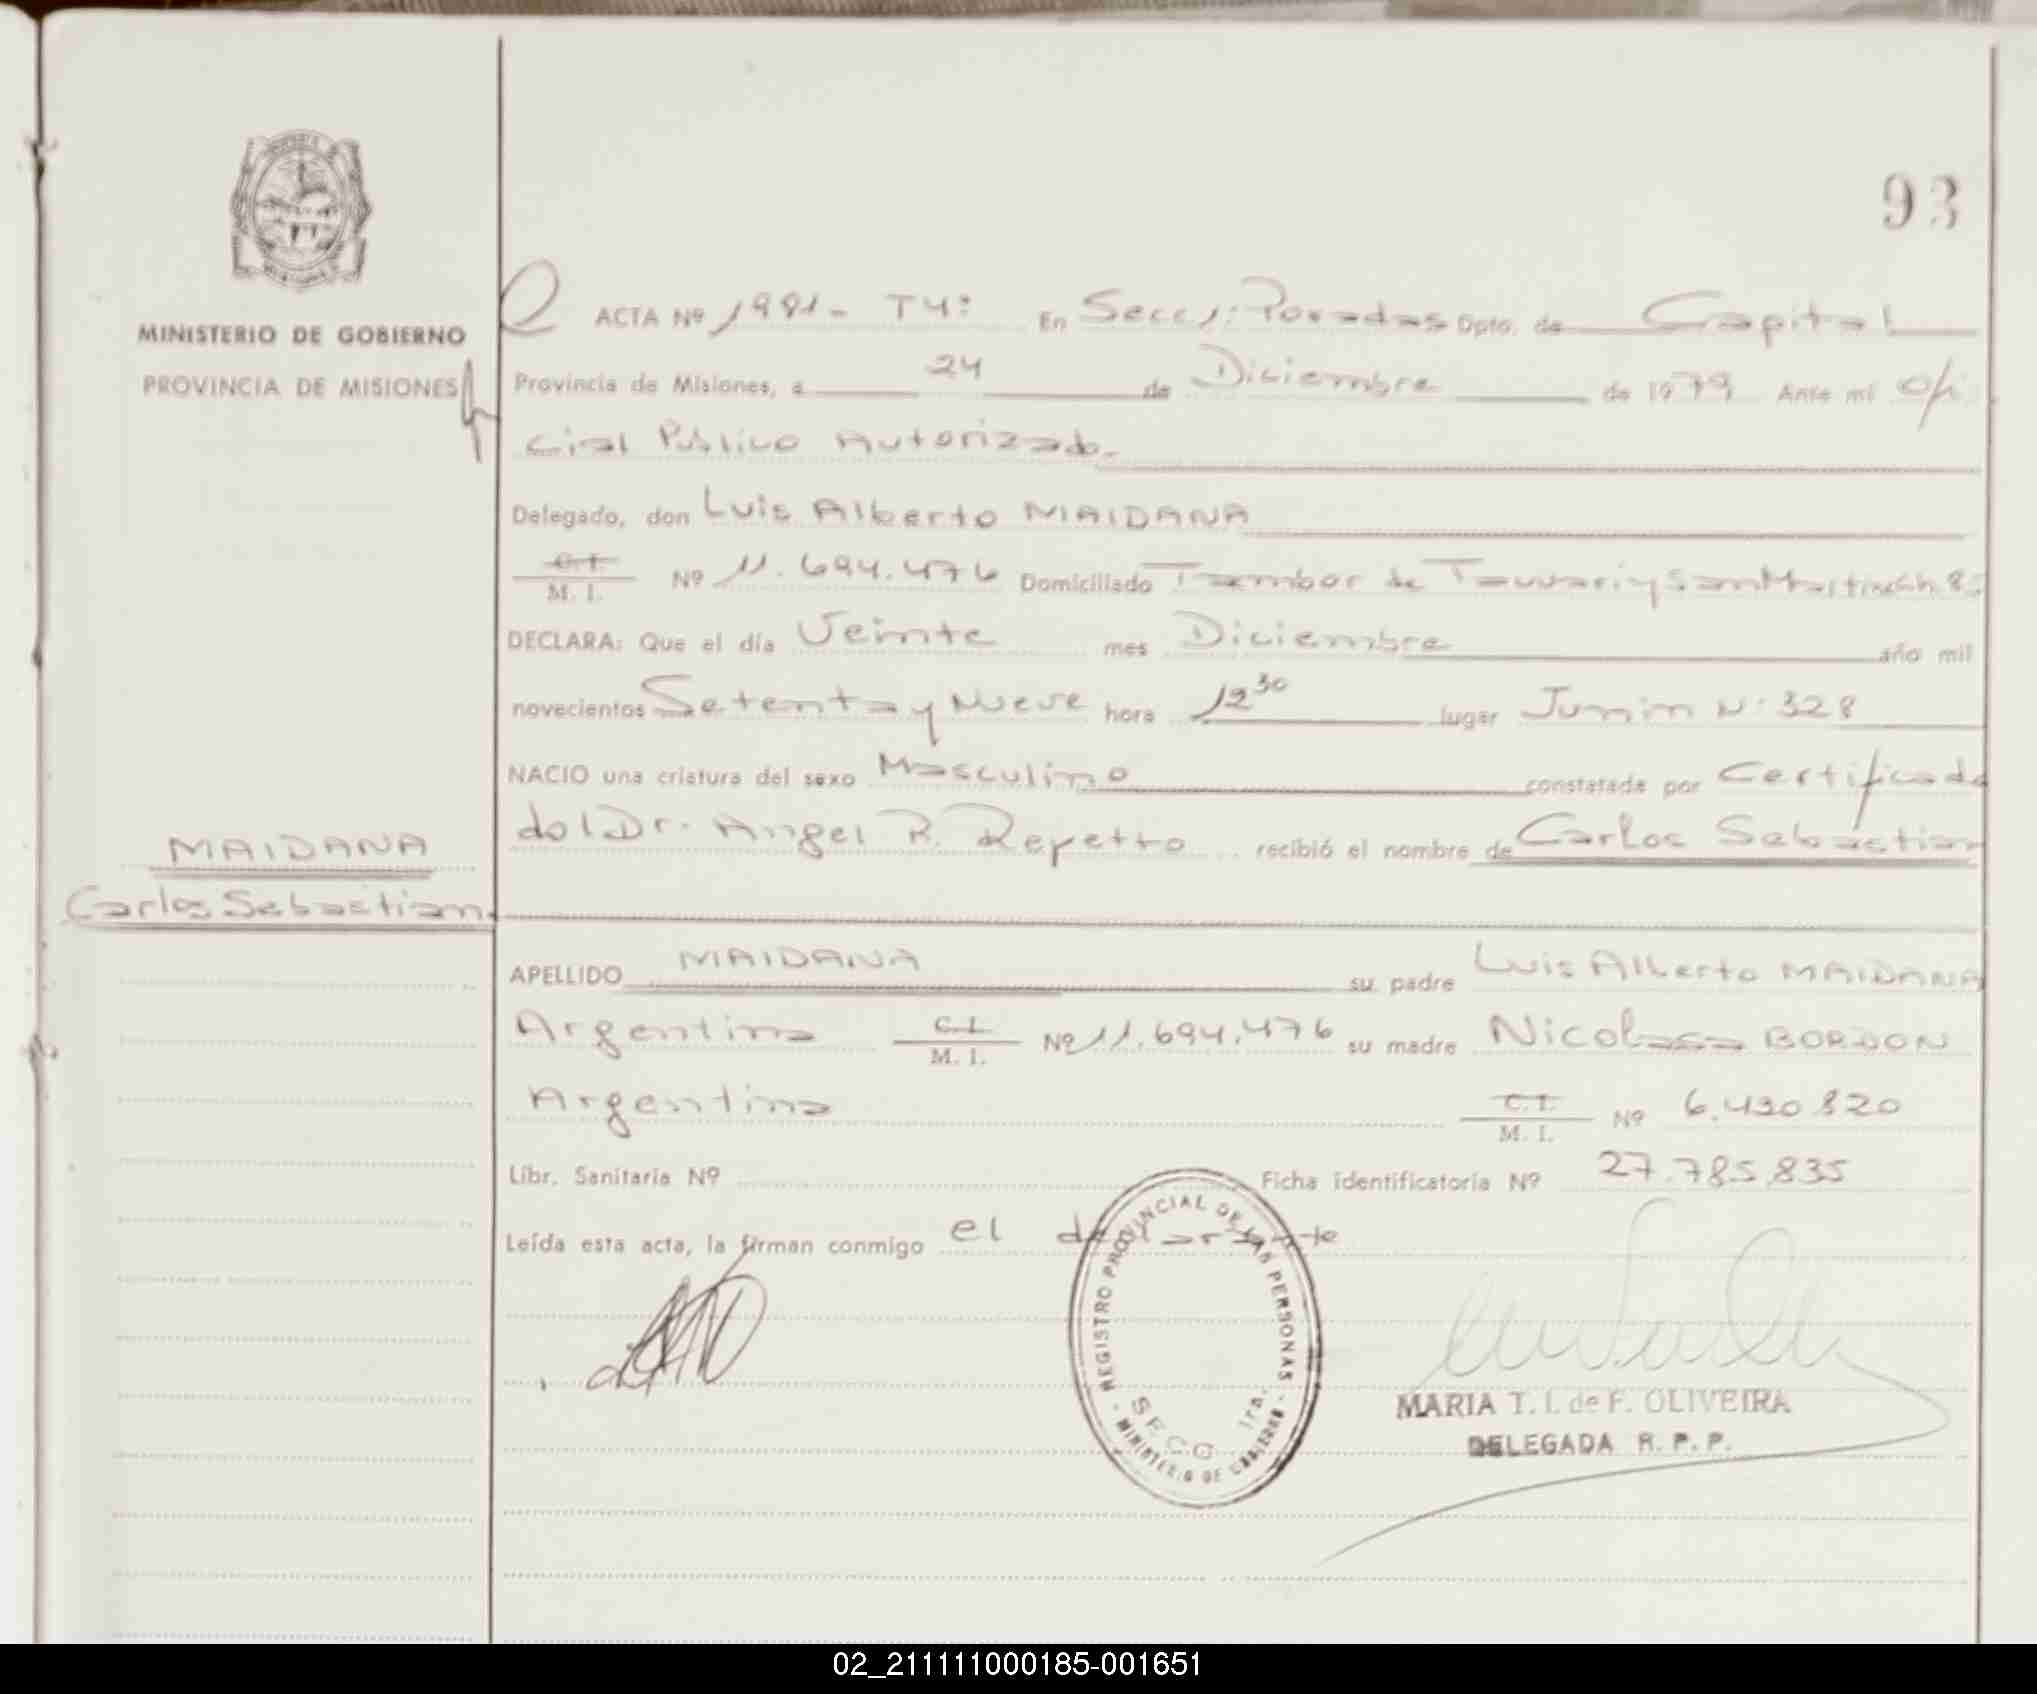 93
MINISTERIO DE GOBIERNO
PROVINCIA DE MISIONES
ACTA Nº 1981- T4: En Secc 1: Posadas Dpto. de Capital
Provincia de Misiones, a 24 de Diciembre de 1979 Ante mi Ofi
cial Publico Autorizado.
Delegado, don Luis Alberto MAIDANA
C.I.
M. I. Nº 11.694.476 Domiciliado Tambor de Tacuari y San Martin Ch. 83
DECLARA: Que el día Veinte mes Diciembre año mil
novecientos Setenta y Nueve hora 12 30 lugar Junin Nº 328
NACIO una criatura del sexo Masculino constatada por Certificado
del Dr. Angel R. Repetto recibió el nombre de Carlos Sebastian
MAIDANA
Carlos Sebastian.
APELLIDO MAIDANA su padre Luis Alberto MAIDANA
Argentino C.I.
M. I. Nº 11.694.476 su madre Nicolasa BORDON
Argentina C.I.
M. I. Nº 6.430.820
Libr. Sanitaria Nº Ficha identificatoria Nº 27.785.835
Leída esta acta, la firman conmigo el declarante
REGISTRO PROVINCIAL DE LAS PERSONAS
SECC 1ra.
- MINISTERIO DE GOBIERNO -
MARIA T. I. de F. OLIVEIRA
DELEGADA R. P. P.
02_211111000185-001651